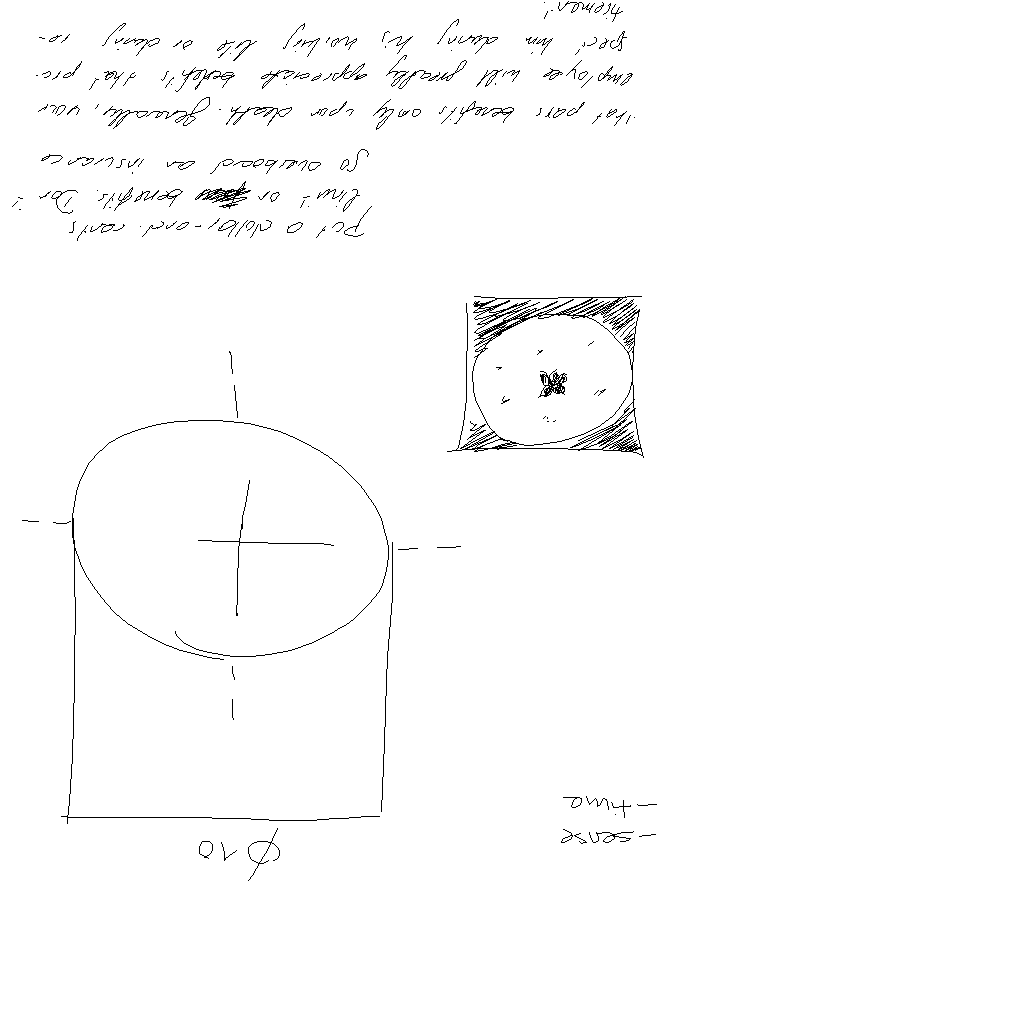 Ø 10
- sense
- time
Put a dollar-and-cents
limit on benefits. Don't
go overboard on insurance
that pays benefits only upon death. Generally, your
employee will greatly appreciate benefits that pro-
him during his working life or during re-
tirement.